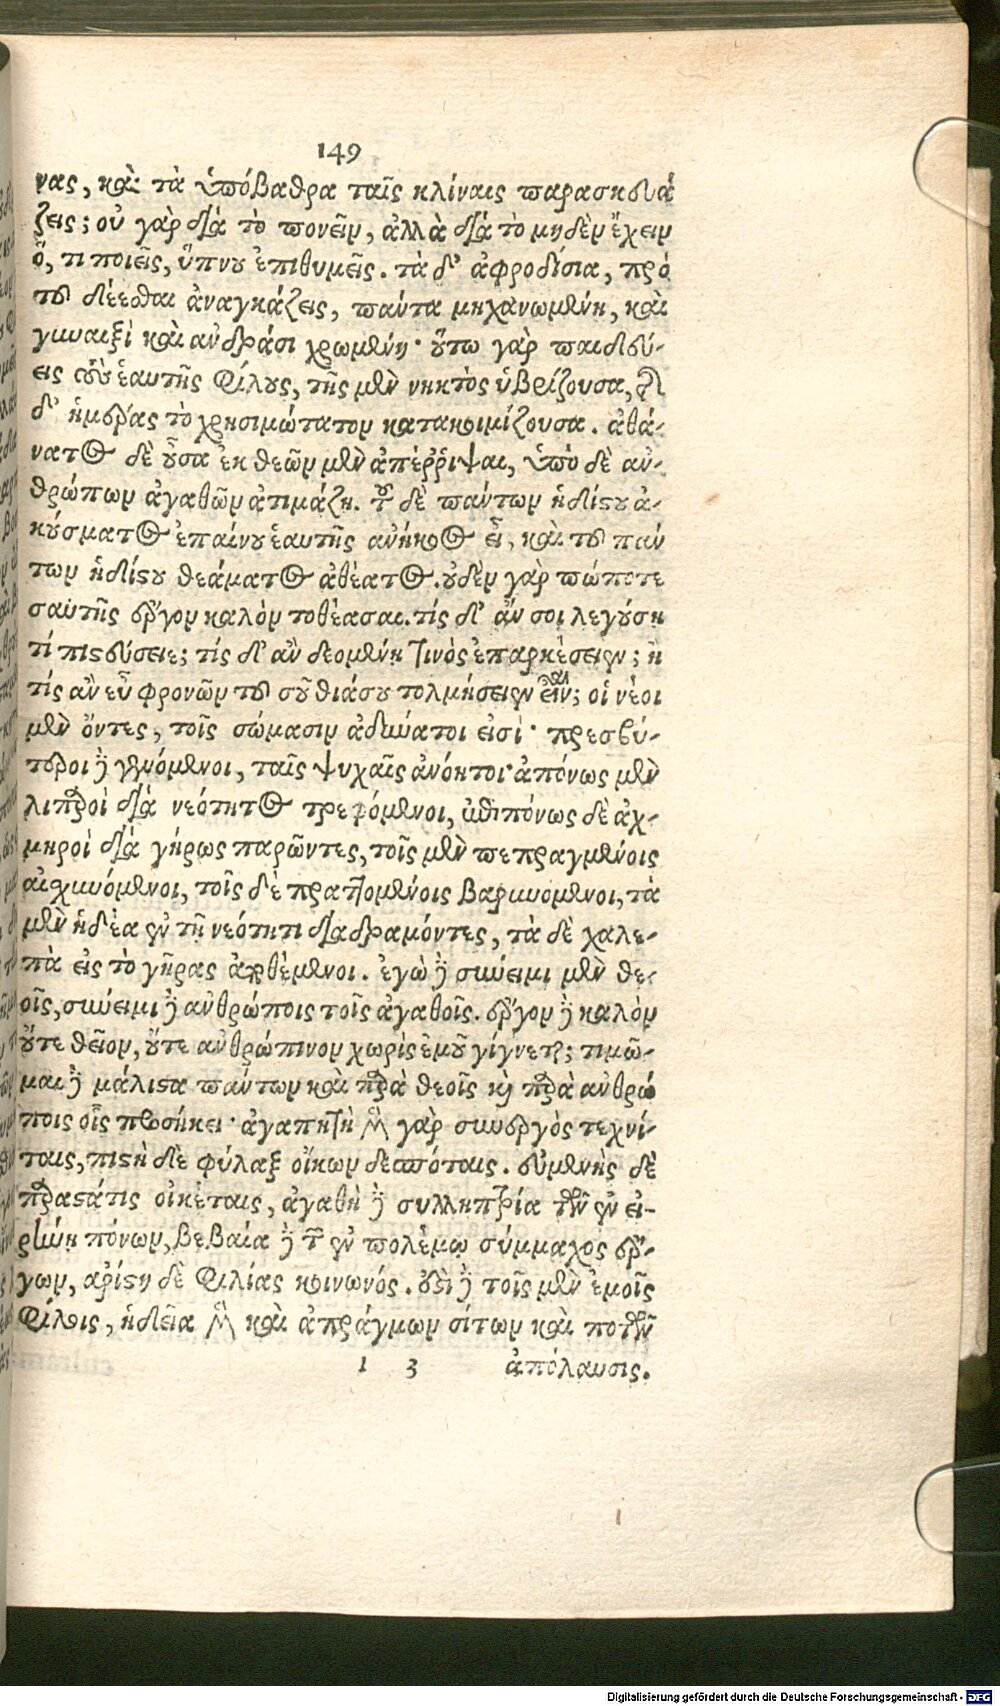 149
νας, καὶ τὰ ὑπόβαθρα ταῖς κλίναις παρασκευά
ζεις; οὐ γὰρ διὰ τὸ πονεῖν, ἀλλὰ διὰ τὸ μηδὲν ἔχειν
ὅ, τι ποιεῖς, ὕπνου ἐπιθυμεῖς. τὰ δ' ἀφροδίσια, πρὸ
τοῦ δέεσθαι ἀναγκάζεις, πάντα μηχανωμένη, καὶ
γυναιξὶ καὶ ἀνδράσι χρωμένη· οὕτω γὰρ παιδεύ-
εις τοὺς ἑαυτῆς φίλους, τῆς μὲν νηκτὸς ὑβρίζουσα, τῆς
δ' ἡμέρας τὸ χρησιμώτατον κατακοιμίζουσα. ἀθά-
νατος δὲ οὖσα ἐκ θεῶν μὲν ἀπέῤῥιψαι, ὑπὸ δὲ ἀν-
θρώπων ἀγαθῶν ἀτιμάζη. τοῦ δὲ πάντων ἡδίστου ἀ-
κούσματος ἐπαίνου ἑαυτῆς ἀνήκοος εἶ, καὶ τοῦ πάν
των ἡδίστου θεάματος ἀθέατος. οὐδὲν γὰρ πώποτε
σαυτῆς ἔργον καλὸν τοθέασαι. τίς δ' ἄν σοι λεγούση
τί πιστεύσειε; τίς δ' ἂν δεομένη τινὸς ἐπαρκέσειεν; ἢ
τίς ἂν εὖ φρονῶν τοῦ σοῦ θιάσου τολμήσειεν εἶναι; οἱ νέοι
μὲν ὄντες, τοῖς σώμασιν ἀδύνατοι εἰσί· πρεσβύ-
τεροι δὲ γενόμενοι, ταῖς ψυχαῖς ἀνόητοι· ἀπόνως μὲν
λιπαροὶ διὰ νεότητος τρεφόμενοι, ἐπιπόνως δὲ αὐχ-
μηροὶ διὰ γήρως παρῶντες, τοῖς μὲν πεπραγμένοις
αἰσχυνόμενοι, τοῖς δὲ πραττομένοις βαρυνόμενοι, τὰ
μὲν ἡδέα ἐν τῇ νεότητι διαδραμόντες, τὰ δὲ χαλε-
πὰ εἰς τὸ γῆρας ἀποθέμενοι. ἐγὼ δὲ σύνειμι μὲν θε-
οῖς, σύνειμι δὲ ἀνθρώποις τοῖς ἀγαθοῖς. ἔργον δὲ καλὸν
οὔτε θεῖον, οὔτε ἀνθρώπινον χωρὶς ἐμοῦ γίγνεται; τιμῶ-
μαι δὲ μάλιστα πάντων καὶ παρὰ θεοῖς καὶ παρὰ ἀνθρώ
ποις οἷς προσήκει· ἀγαπητὴ μὲν γὰρ συνεργὸς τεχνί-
ταις, πιστὴ δὲ φύλαξ οἴκων δεσπόταις. εὐμενὴς δὲ
παραστάτις οἰκέταις, ἀγαθὴ δὲ συλλήπτρια τῶν ἐν εἰ-
ρήνη πόνων, βεβαία δὲ τῶν ἐν πολέμῳ σύμμαχος ἔρ-
γων, ἀρίστη δὲ φιλίας κοινωνός. ἔστι δὲ τοῖς μὲν ἐμοῖς
φίλοις, ἡδεῖα μὲν καὶ ἀπράγμων σίτων καὶ ποτῶν
1 3 ἀπόλαυσις.
Digitalisierung gefördert durch die Deutsche Forschungsgemeinschaft - DFG